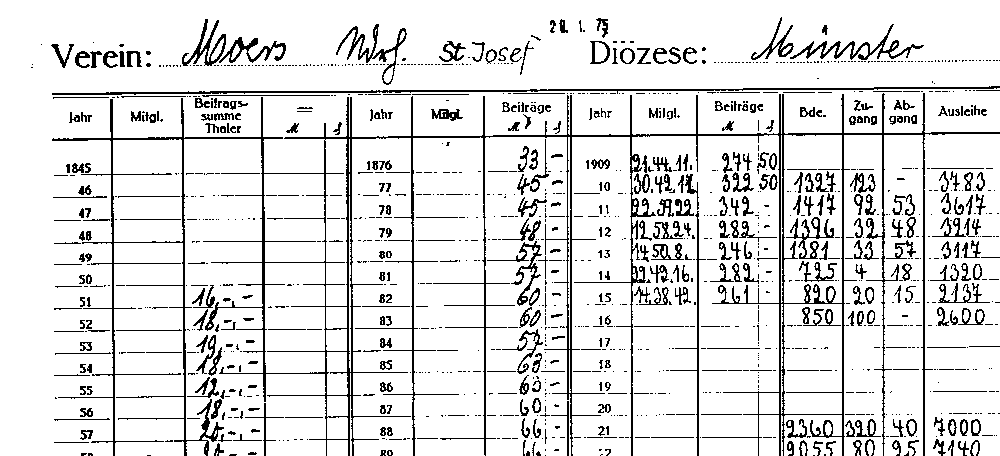 20. 1. 75
Verein: Moers Wrh. St Josef Diözese: Münster
Jahr Mitgl. Beitrags-summe Thaler = M ₰ Jahr Mitgl. Beiträge M ₰ Jahr Mitgl. Beiträge M ₰ Bde. Zu-gang Ab-gang Ausleihe
1845 1876 33 - 1909 21.44.11. 274 50
46 77 45 - 10 30.42.12. 322 50 1327 123 - 3783
47 78 45 - 11 22.39.22. 342 - 1417 92 53 3617
48 79 48 - 12 12.58.24. 282 - 1396 32 48 3214
49 80 57 - 13 14.50.8. 246 - 1381 33 57 3117
50 81 57 - 14 22.42.16. 282 - 725 4 18 1320
51 16,-,- 82 60 - 15 14.38.42. 261 - 820 20 15 2137
52 18,-,- 83 60 - 16 850 100 - 2600
53 19,-,- 84 57 - 17
54 18,-,- 85 63 - 18
55 12,-,- 86 60 - 19
56 18,-,- 87 60 - 20
57 20,-,- 88 66 - 21 2360 320 40 7000
89 66 - 9055 80 95 7140